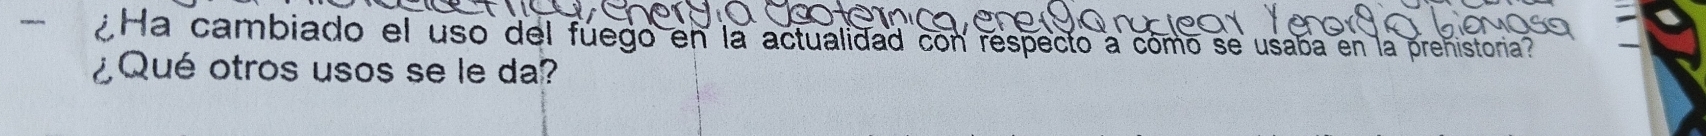 energía geotermica, energía nuclear y energía biomasa
¿Ha cambiado el uso del fuego en la actualidad con respecto a cómo se usaba en la prehistoria?
¿Qué otros usos se le da?